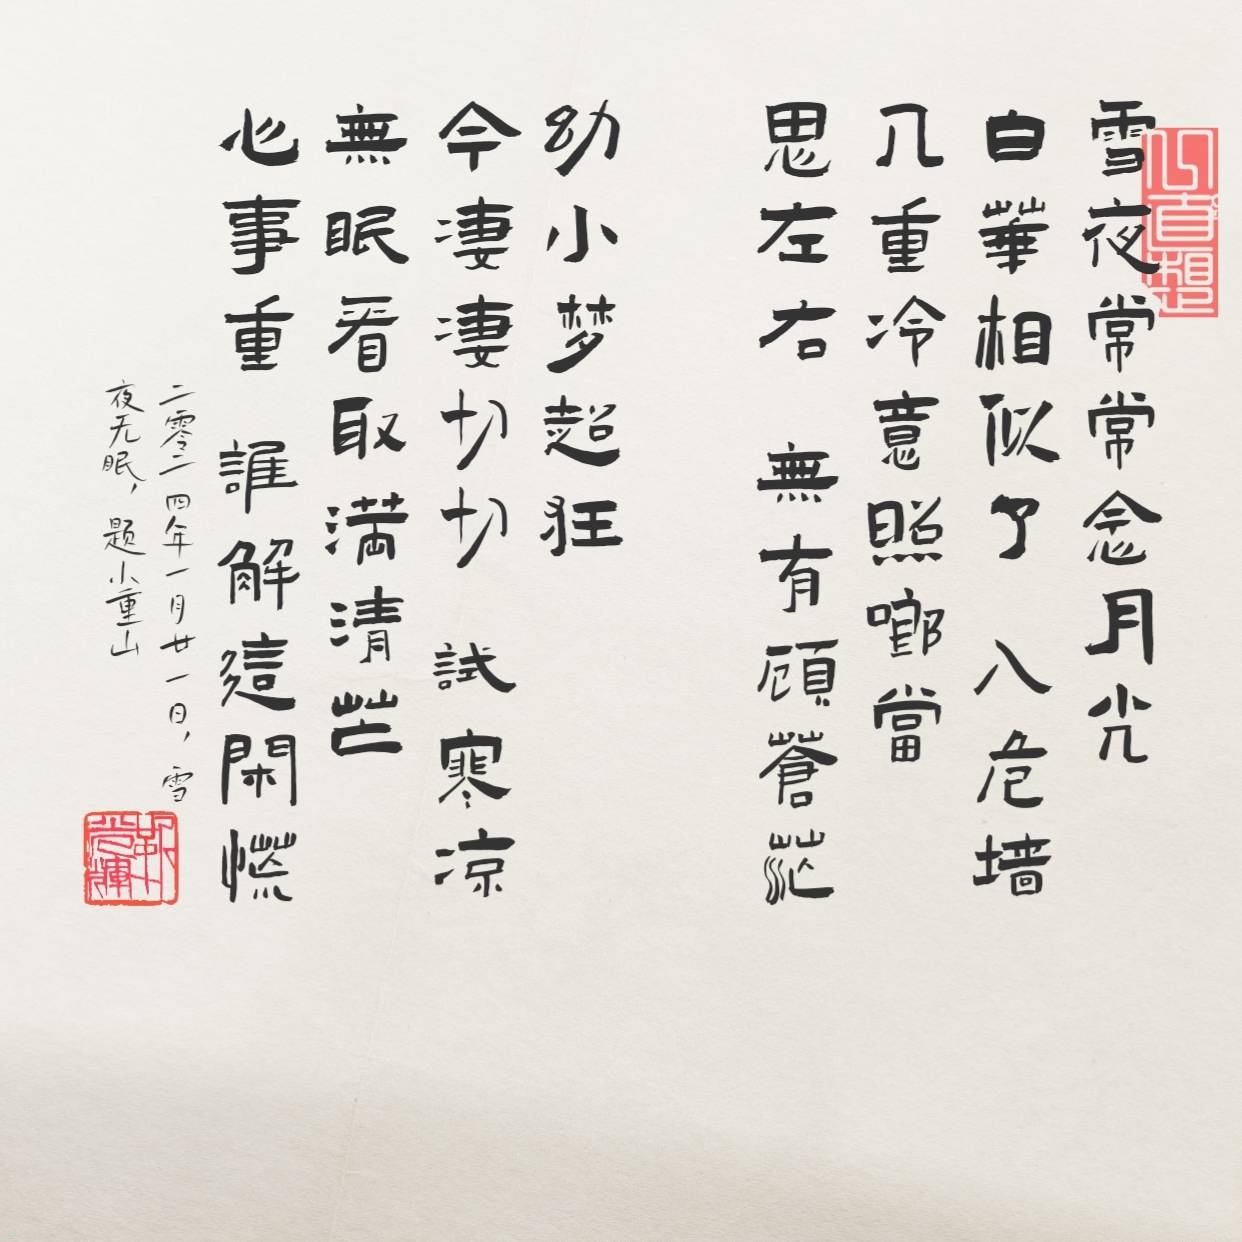 雪夜常常念月光
白華相似了 入危墙
几重冷意照啷當
思左右 無有顧蒼茫
幼小梦超狂
今凄凄切切 試寒凉
無眠看取満清芒
心事重 誰解這閑慌
二零二四年一月廿一日，雪
夜无眠，题小重山